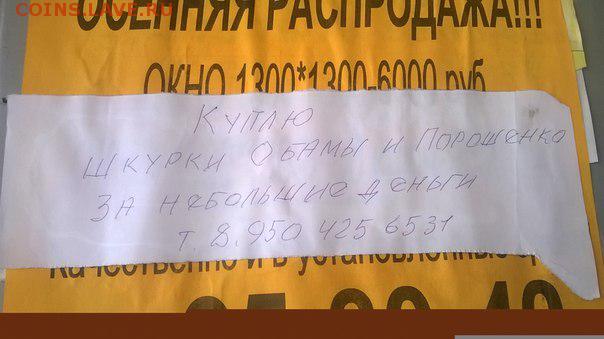 COINS.LAVE.RU
ОСЕННЯЯ РАСПРОДАЖА!!!
ОКНО 1300*1300-6000 руб
КУПЛЮ
ШКУРКИ ОБАМЫ И ПОРОШЕНКО
ЗА НЕБОЛЬШИЕ ДЕНЬГИ
Т. 8.950 425 6531
Качественно и в установленные